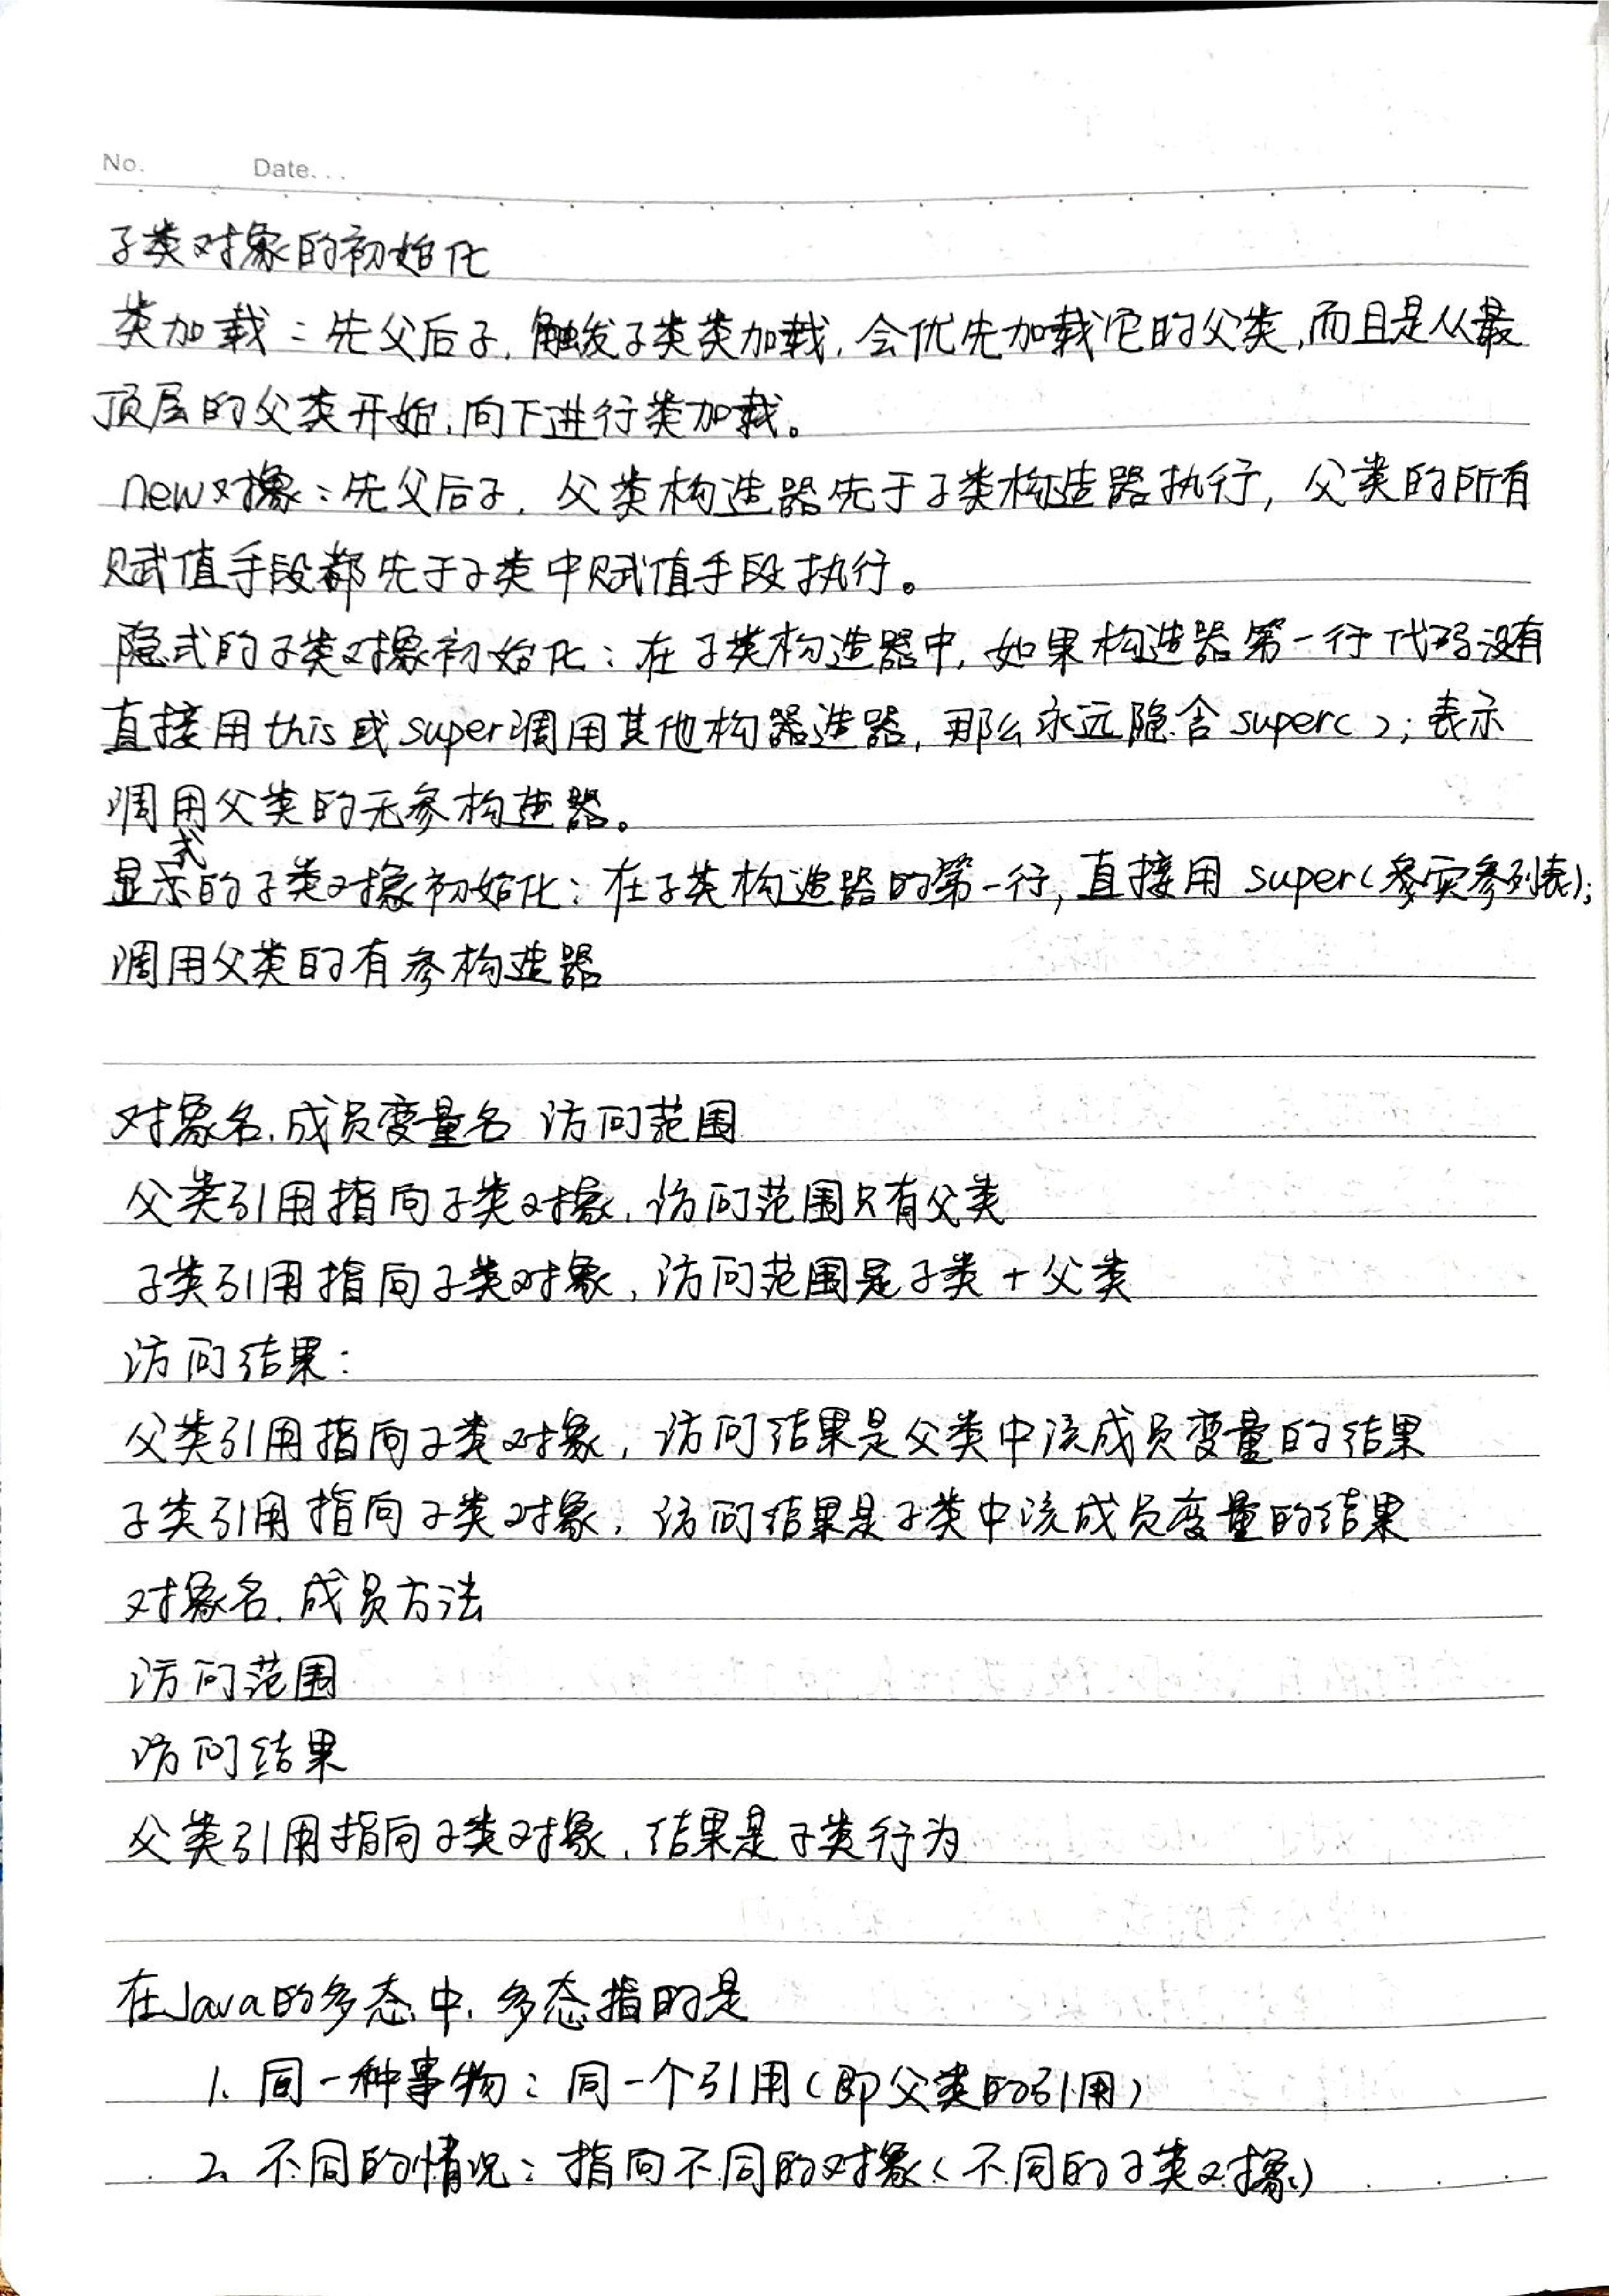 No. Date. . .
子类对象的初始化
类加载：先父后子，触发子类类加载，会优先加载它的父类，而且是从最
顶层的父类开始，向下进行类加载。
new对象：先父后子，父类构造器先于子类构造器执行，父类的所有
赋值手段都先于子类中赋值手段执行。
隐式的子类对象初始化：在子类构造器中，如果构造器第一行代码没有
直接用this或super调用其他构器造器，那么永远隐含super()；表示
调用父类的无参构造器。
显式的子类对象初始化：在子类构造器的第一行，直接用super(参实参列表)；
调用父类的有参构造器
对象名.成员变量名 访问范围
父类引用指向子类对象，访问范围只有父类
子类引用指向子类对象，访问范围是子类+父类
访问结果：
父类引用指向子类对象，访问结果是父类中该成员变量的结果
子类引用指向子类对象，访问结果是子类中该成员变量的结果
对象名.成员方法
访问范围
访问结果
父类引用指向子类对象，结果是子类行为
在Java的多态中，多态指的是
1、同一种事物：同一个引用(即父类的引用)
2、不同的情况：指向不同的对象(不同的子类对象)